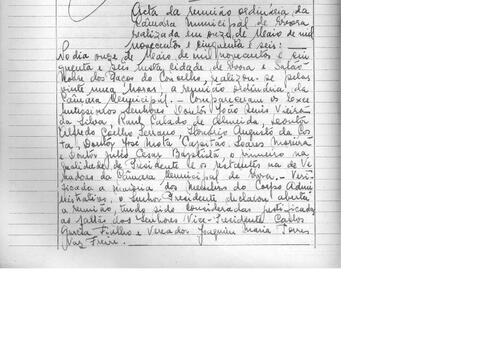 Acta da reunião ordinária da
Câmara Municipal de Evora
realizada em onze de Maio de mil
novecentos e cinquenta e seis: —
No dia onze de Maio de mil novecentos e cin
quenta e seis nesta cidade de Evora e Salão
Nobre dos Paços do Concelho, realizou-se pelas
vinte uma horas, a reunião ordinária da
Câmara Municipal. — Compareceram os Exce
lentissimos Senhores Doutor João Luis Vieira
da Silva, Raul Calado de Almeida,
Alfredo Coelho Serrano, Honório Augusto da Cos
ta, Doutor José Mota Capitão Soares Moreira
e Doutor Julio Cesar Baptista, o primeiro na
qualidade de Presidente e os restantes na de Ve
readores da Câmara Municipal de Evora. — Veri
ficada a presença dos membros do Corpo Admi
nistrativo, o Senhor Presidente declarou aberta
a reunião, tendo sido consideradas justificadas
as faltas dos Senhores Vice-Presidente Carlos
Garcia Fialho e Vereador Joaquim Maria Torres
Vaz Freire. —